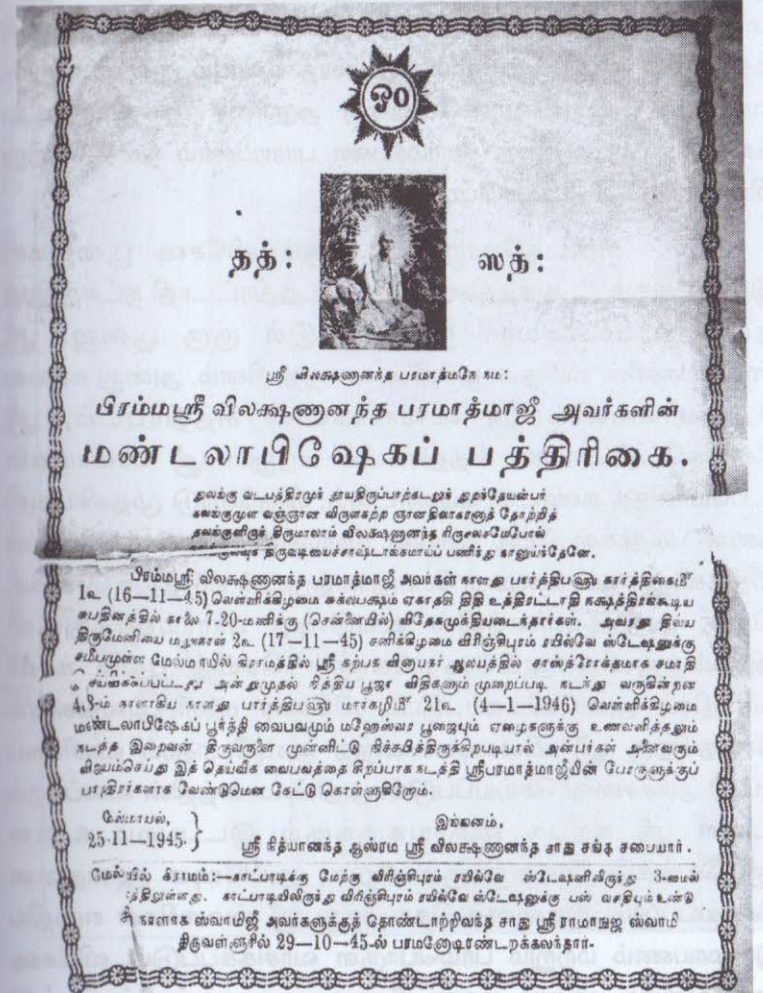 ஓம்
தத்: ஸத்:
ஸ்ரீ விலக்ஷணானந்த பரமாத்மநே நம:
பிரம்மஸ்ரீ விலக்ஷணானந்த பரமாத்மாஜீ அவர்களின்
மண்டலாபிஷேகப் பத்திரிகை.
துலங்கு வடபத்திரமூர் தூயதிருப்பாற்கடலுர் துறந்தேயன்பர்
கலங்குமுள வஞ்ஞான விருளகற்ற ஞானதிவாகரனாத் தோற்றித்
தலங்குளிருந் திருமாலாம் விலக்ஷணானந்த நிருசலமேபோல்
திருவடியைச்சாஷ்டாங்கமாய்ப் பணிந்து நானுய்ந்தேனே.
பிரம்மஸ்ரீ விலக்ஷணானந்த பரமாத்மாஜீ அவர்கள் நாளது பார்த்திப௵ கார்த்திகைமீ
1௳ (16-11-45) வெள்ளிக்கிழமை சுக்லபக்ஷம் ஏகாதசி திதி உத்திரட்டாதி நக்ஷத்திரங்கூடிய
சுபதினத்தில் காலை 7.20-மணிக்கு (சென்னையில்) விதேகமுக்தியடைந்தார்கள். அவரது திவ்ய
திருமேனியை மறுநாள் 2௳ (17-11-45) சனிக்கிழமை விரிஞ்சிபுரம் ரயில்வே ஸ்டேஷனுக்கு
சமீபமுள்ள மேல்மாயில் கிராமத்தில் ஸ்ரீ கற்பக விநாயகர் ஆலயத்தில் சாஸ்த்ரோக்தமாக சமாதி
செய்விக்கப்பட்டது அன்றுமுதல் நித்திய பூஜா விதிகளும் முறைப்படி நடந்து வருகின்றன
48-ம் நாளாகிய நாளது பார்த்திப௵ மார்கழிமீ 21௳ (4-1-1946) வெள்ளிக்கிழமை
மண்டலாபிஷேகப் பூர்த்தி வைபவமும் மஹேஸ்வர பூஜையும் ஏழைகளுக்கு உணவளித்தலும்
நடத்த இறைவன் திருவருளை முன்னிட்டு நிச்சயித்திருக்கிறபடியால் அன்பர்கள் அனைவரும்
விஜயம்செய்து இத் தெய்வீக வைபவத்தை சிறப்பாக நடத்தி ஸ்ரீபரமாத்மாஜீயின் பேரருளுக்குப்
பாத்திரர்களாக வேண்டுமென கேட்டு கொள்ளுகிறோம்.
மேல்மாயல்,
25-11-1945
இங்கனம்,
ஸ்ரீ நித்யானந்த ஆஸ்ரம ஸ்ரீ விலக்ஷணானந்த சாது சங்க சபையார்.
மேல்மாயில் கிராமம்:—காட்பாடிக்கு மேற்கு விரிஞ்சிபுரம் ரயில்வே ஸ்டேஷனிலிருந்து 3-மைல்
காட்பாடியிலிருந்து விரிஞ்சிபுரம் ரயில்வே ஸ்டேஷனுக்கு பஸ் வசதியும் உண்டு
ஸ்வாமிஜீ அவர்களுக்குத் தொண்டாற்றிவந்த சாது ஸ்ரீ ராமாநுஜ ஸ்வாமி
திருவள்ளூரில் 29-10-45-ல் பரமனோடிரண்டறக்கலந்தார்.